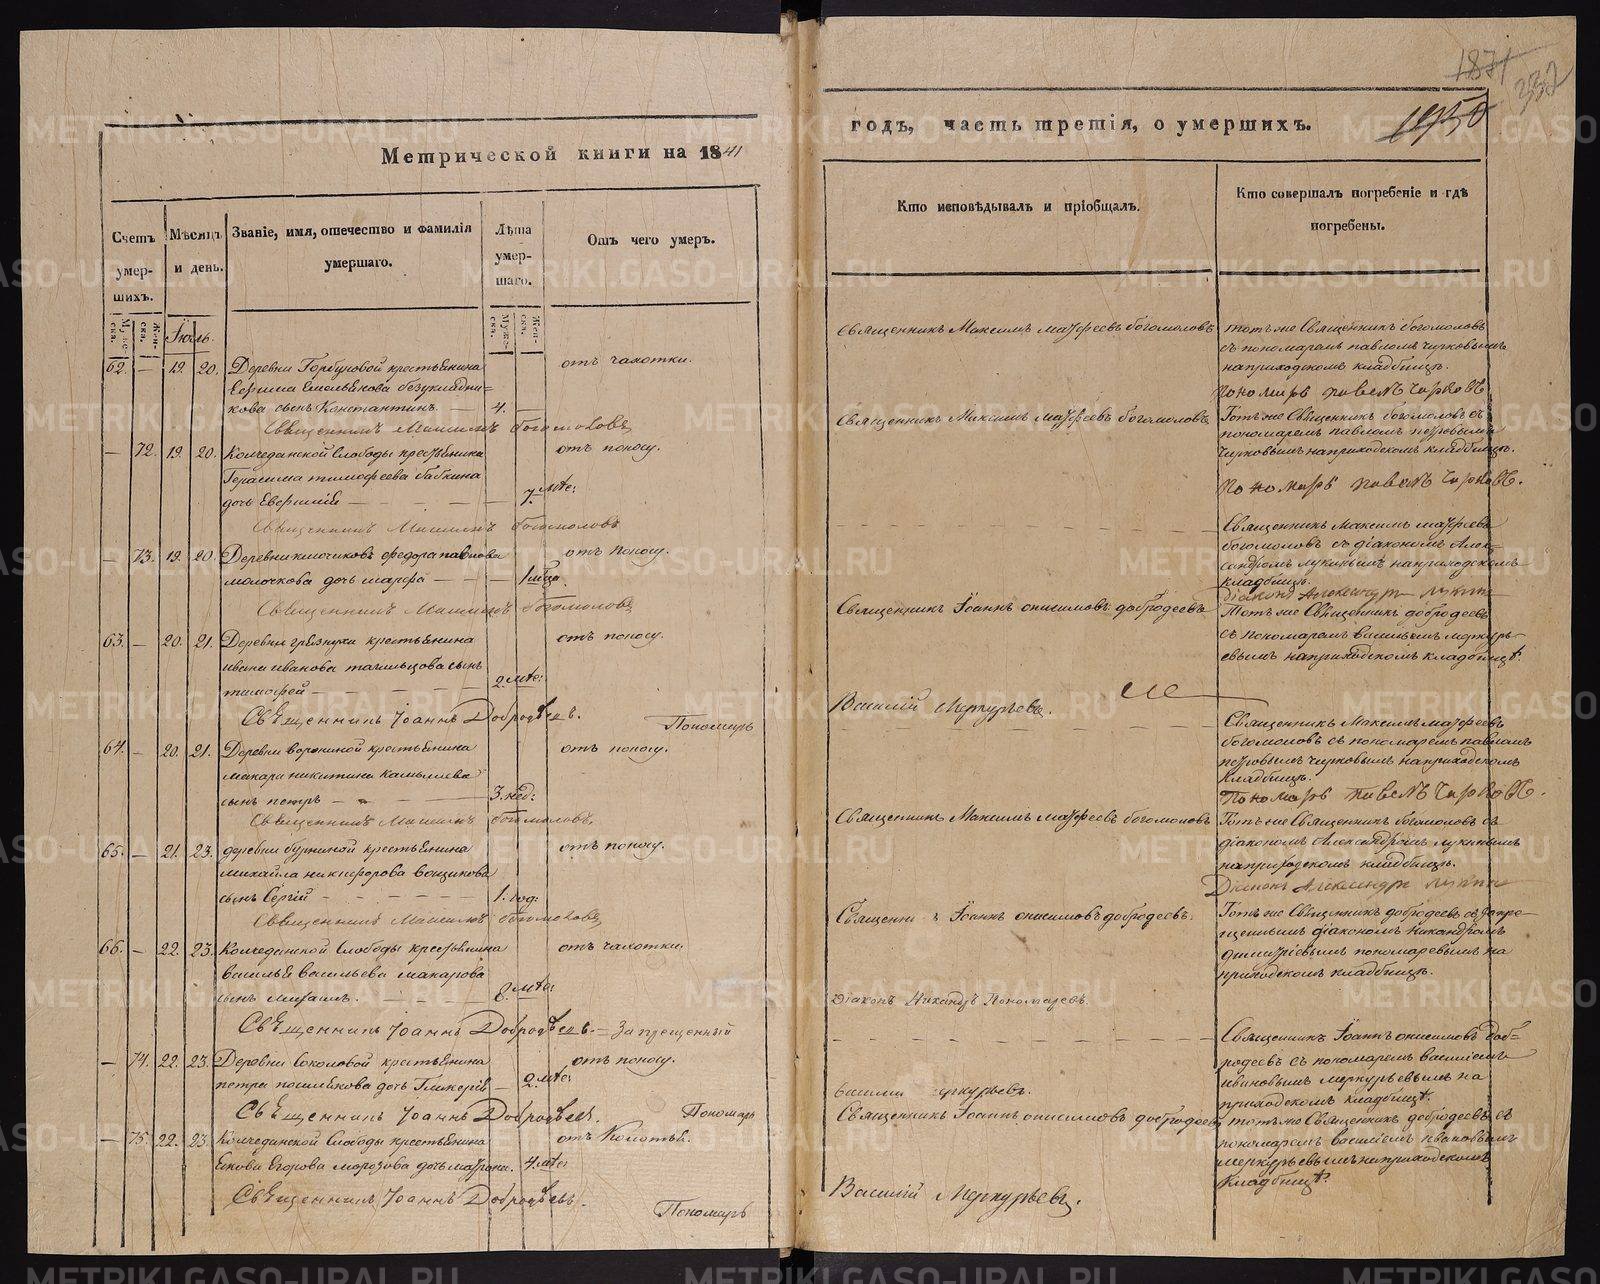 Метрической книги на 1841
Счетъ умершихъ.
Мужеска.
Женска.
Мѣсяцъ и день.
Званіе, имя, отечество и фамилія умершаго.
Лѣта умершаго.
Мужеска.
Женска.
Отъ чего умеръ.
Іюль.
62. — 19 20. Деревни Горбуновой крестьянина отъ чахотки.
кова сынъ Константинъ. — 4.
Священникъ Максимъ Богомоловъ
— 72. 19 20. Колчеданской Слободы крестьянина отъ поносу.
Герасима тимофеева бабкина
дочь — 7. мце:
Священникъ Максимъ Богомоловъ
— 73. 19. 20. Деревни ключиковъ федора павлова отъ поносу.
молочкова дочь марфа — — 1 мѣца.
Священникъ Максимъ Богомоловъ
63. — 20. 21. Деревни грязнухи крестьянина отъ поносу.
ивана иванова сынъ
тимофей — — — 2. мце:
Священникъ Іоаннъ Добродѣевъ. Пономарь
64. — 20. 21. Деревни ворониной крестьянина отъ поносу.
макара никитина
сынъ петръ — — 3. нед:
Священникъ Максимъ Богомоловъ
65. — 21. 23. деревни буриной крестьянина отъ поносу.
михайла никифорова вощикова
сынъ Сергій — — 1. год:
Священникъ Максимъ Богомоловъ
66. — 22. 23. Колчеданской Слободы крестьянина отъ чахотки.
василья васильева макарова
сынъ михаилъ. — — 8. мце:
Священникъ Іоаннъ Добродѣевъ. — Запрещенный
— 74. 22. 23. Деревни Соколовой крестьянина отъ поносу.
петра дочь Гликерія — 2. мце:
Священникъ Іоаннъ Добродѣевъ. Пономарь
— 75. 22. 23. Колчеданской Слободы крестьянина отъ Колотья.
Якова Егорова морозова дочь матрона. 4. мце:
Священникъ Іоаннъ Добродѣевъ. Пономарь
1831
332
1950
годъ, часть третія, о умершихъ.
Кто исповѣдывалъ и пріобщалъ.
Кто совершалъ погребеніе и гдѣ погребены.
Священникъ Максимъ матфеевъ богомоловъ
тотъ же Священникъ богомоловъ
съ пономаремъ павломъ чирковымъ
на приходскомъ кладбищѣ.
Пономарь павелъ Чирковъ
Священникъ Максимъ матфеевъ богомоловъ
Тотъ же Священникъ богомоловъ съ
пономаремъ павломъ петровымъ
чирковымъ на приходскомъ кладбищѣ.
Пономарь павелъ Чирковъ.
Священникъ Максимъ матфеевъ
богомоловъ съ діакономъ Алек-
сандромъ лукинымъ на приходскомъ
кладбищѣ.
діаконъ Александръ лукинъ
Священникъ Іоаннъ онисимовъ добродеевъ
Тотъ же Священникъ добродеевъ
съ пономаремъ васильемъ меркурь-
евымъ на приходскомъ кладбищѣ.
Василій Меркурьевъ.
Священникъ Максимъ матфеевъ
богомоловъ съ пономаремъ павломъ
петровымъ чирковымъ на приходскомъ
кладбищѣ.
Пономарь павелъ Чирковъ.
Священникъ Максимъ матфеевъ богомоловъ
Тотъ же Священникъ богомоловъ съ
діакономъ Александромъ лукинымъ
на приходскомъ кладбищѣ.
Діаконъ Александръ лукинъ
Священникъ Іоаннъ онисимовъ добродеевъ.
Тотъ же Священникъ добродеевъ съ запре-
щеннымъ діакономъ Никандромъ
димитріевымъ пономаревымъ на
приходскомъ кладбищѣ.
Діаконъ Никандръ Пономаревъ.
Священникъ Іоаннъ онисимовъ доб-
родеевъ съ пономаремъ василіемъ
ивановымъ меркурьевымъ на
приходскомъ кладбищѣ.
Василій Меркурьевъ.
Священникъ Іоаннъ онисимовъ добродеевъ
тотъ же Священникъ добродеевъ съ
пономаремъ василіемъ ивановымъ
меркурьевымъ на приходскомъ
кладбищѣ.
Василій Меркурьевъ.
METRIKI.GASO-URAL.RU